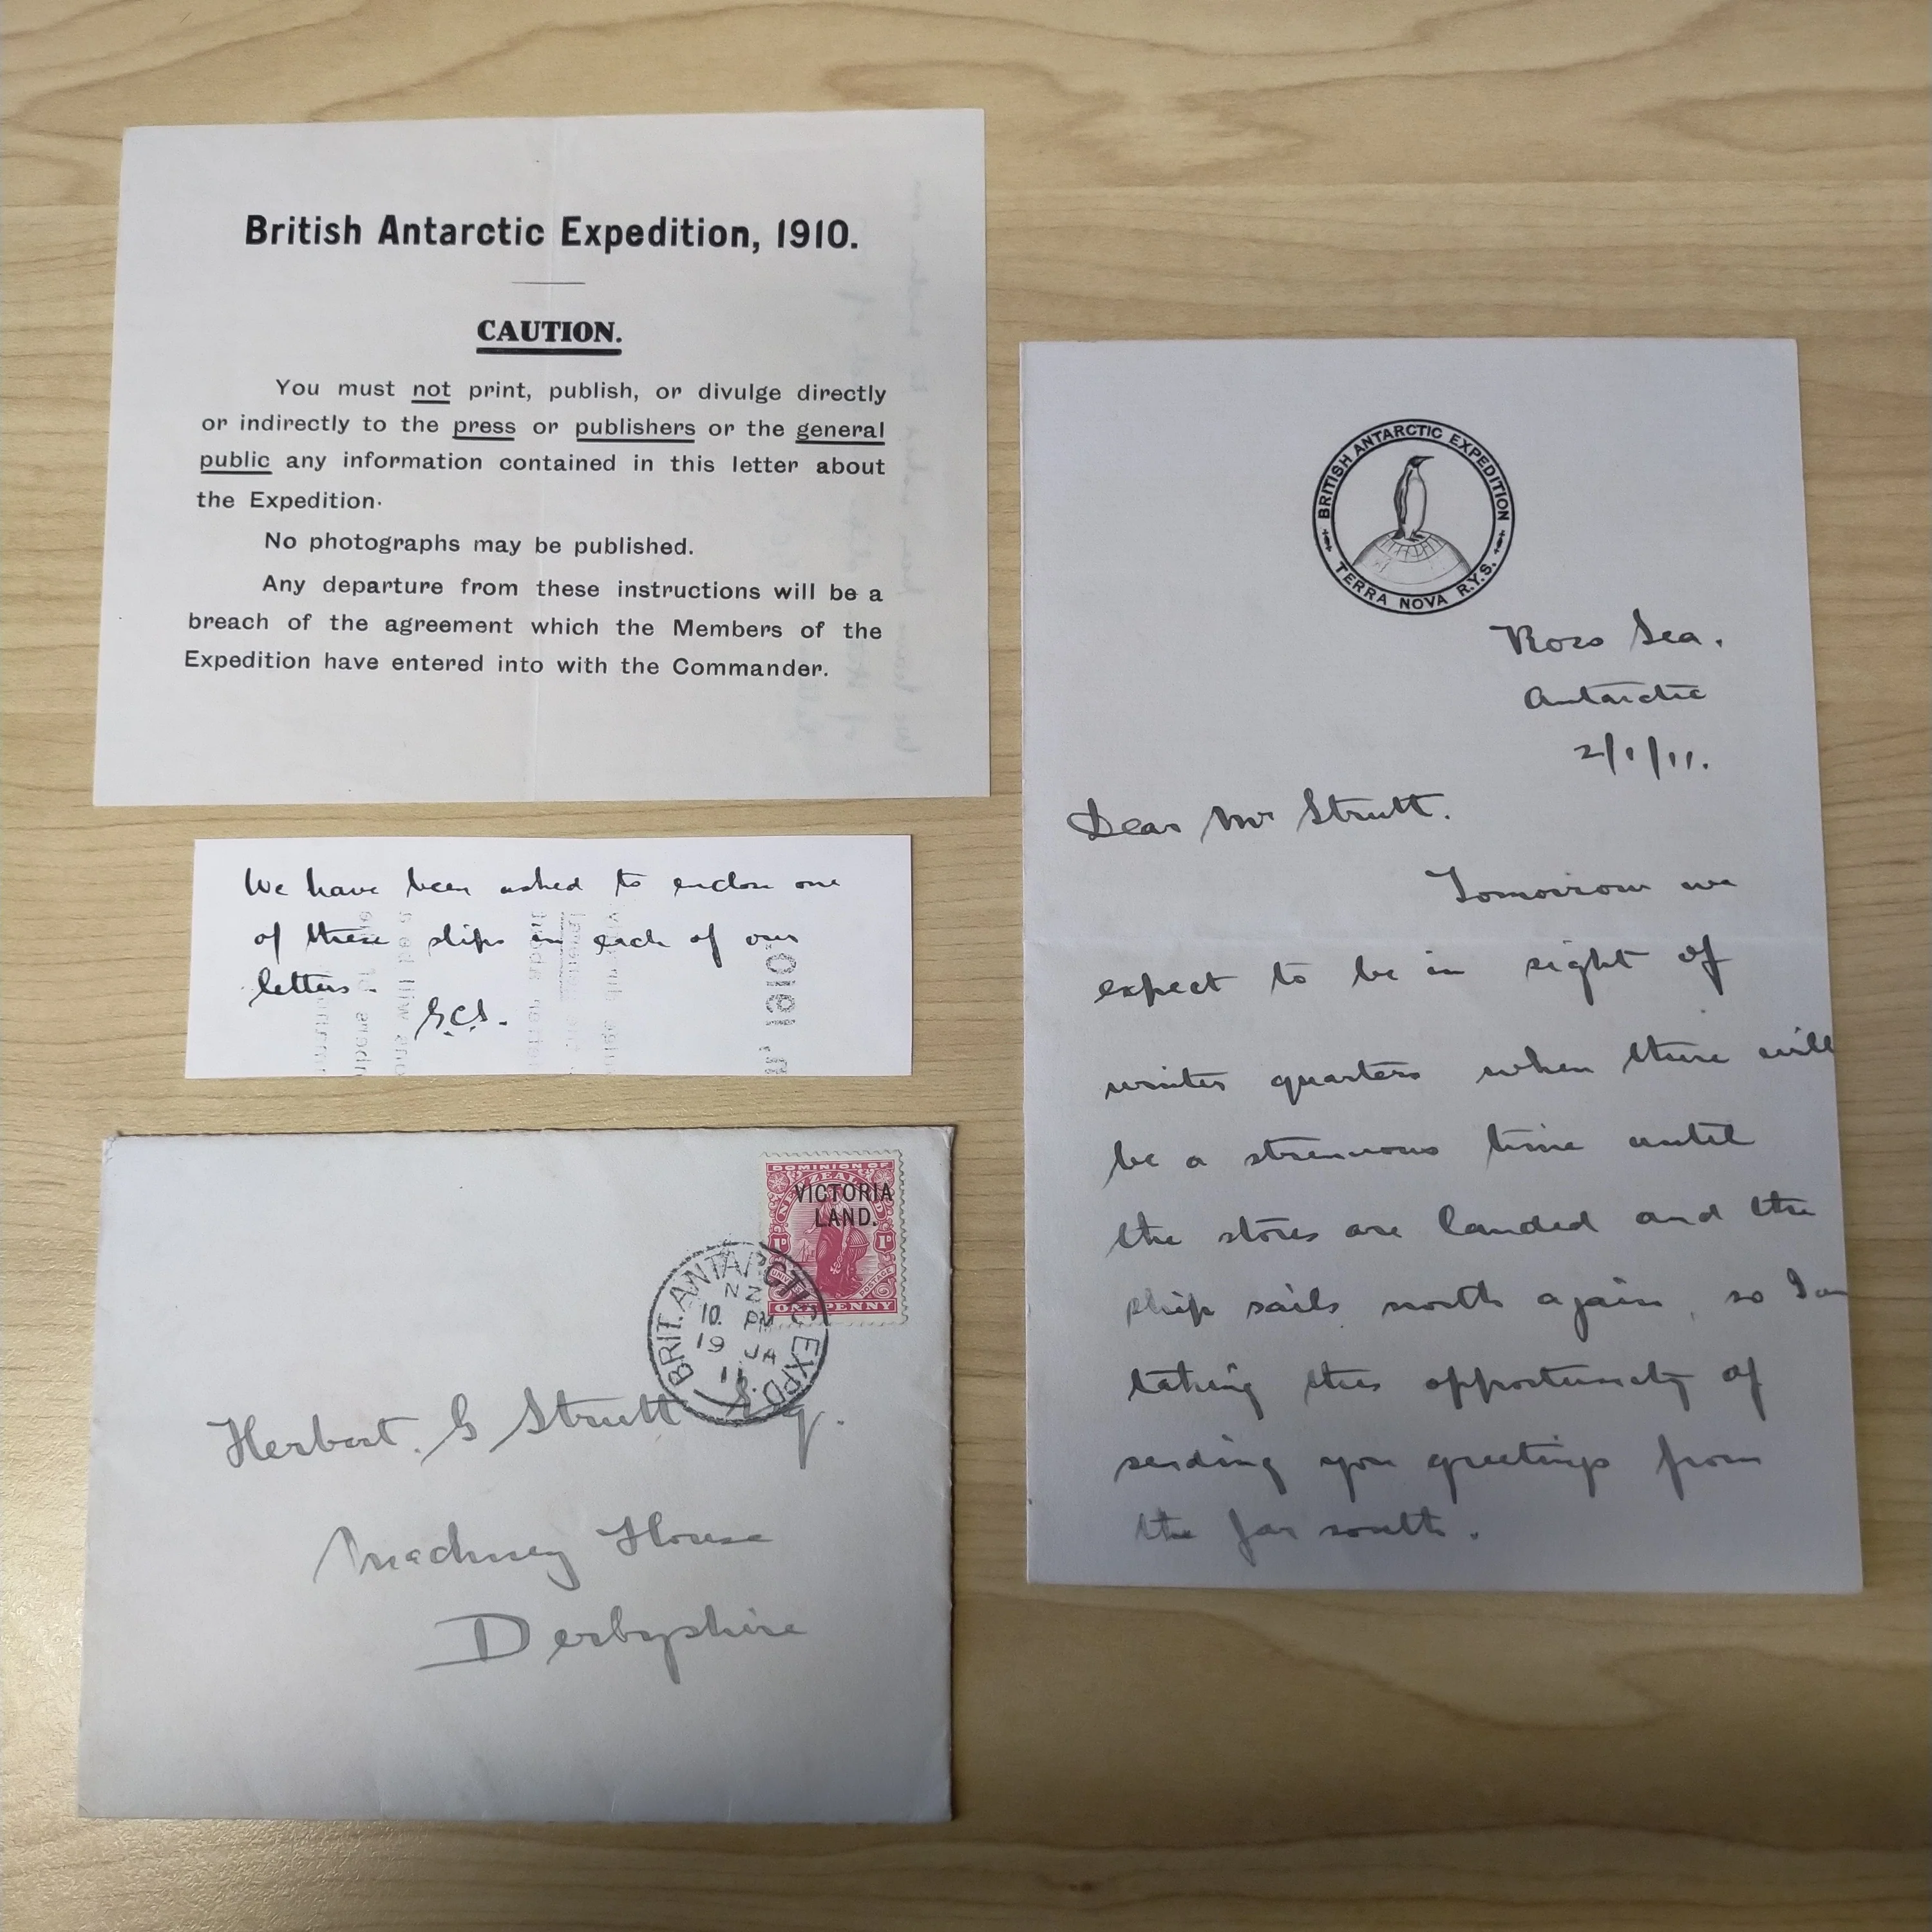 British Antarctic Expedition, 1910.
CAUTION.
You must not print, publish, or divulge directly
or indirectly to the press or publishers or the general
public any information contained in this letter about
the Expedition.
No photographs may be published.
Any departure from these instructions will be a
breach of the agreement which the Members of the
Expedition have entered into with the Commander.
We have been asked to enclose one
of these slips in each of our
letters.
G.C.S.
DOMINION OF
NEW ZEALAND
VICTORIA
LAND.
1D 1D
UNIVERSAL POSTAGE
ONE PENNY
BRIT. ANTARCTIC EXPD.
N Z
10 PM
19 JA
11
Herbert. G Strutt Esq.
Makeney House
Derbyshire
BRITISH ANTARCTIC EXPEDITION
TERRA NOVA R.Y.S.
Ross Sea.
Antarctic
2/1/11.
Dear Mr Strutt.
Tomorrow we
expect to be in sight of
winter quarters when there will
be a strenuous time until
the stores are landed and the
ship sails north again, so I am
taking this opportunity of
sending you greetings from
the far south.